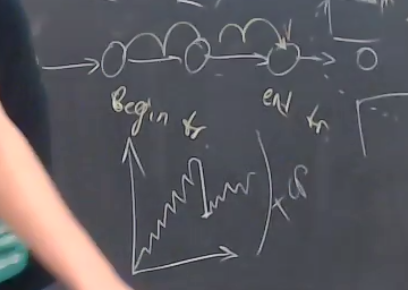 Begin tr
end tr